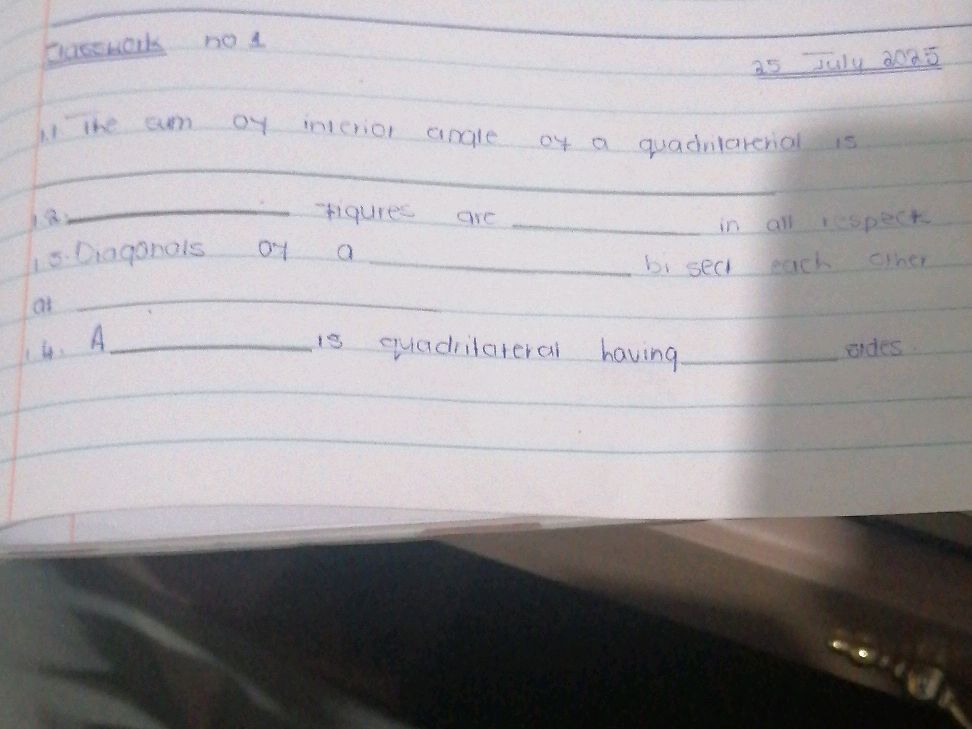 Classwork no 1
25 July 2025
1.1 The sum of interior angle of a quadrilaterial is
1.2. ________ figures are ________ in all respect
1.3. Diagonals of a ________ bi sect each other
at ________
1.4. A ________ is quadrilateral having ________ sides.